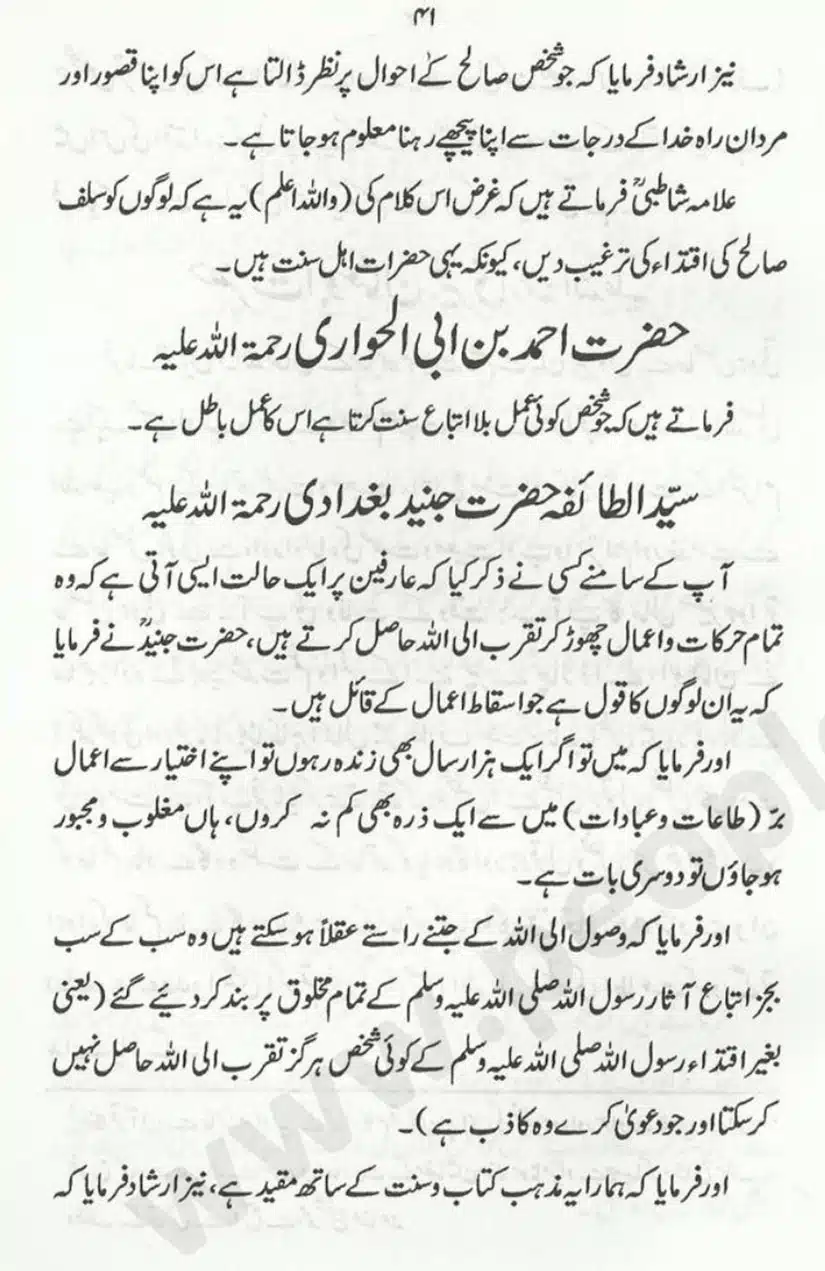 ۴۱
نیز ارشاد فرمایا کہ جو شخص صالح کے احوال پر نظر ڈالتا ہے اس کو اپنا قصور اور
مردان راہ خدا کے درجات سے اپنا پیچھے رہنا معلوم ہو جاتا ہے۔
علامہ شاطبیؒ فرماتے ہیں کہ غرض اس کلام کی (واللہ اعلم) یہ ہے کہ لوگوں کو سلف
صالح کی اقتداء کی ترغیب دیں، کیونکہ یہی حضرات اہل سنت ہیں۔
حضرت احمد بن ابی الحواری رحمۃ اللہ علیہ
فرماتے ہیں کہ جو شخص کوئی عمل بلا اتباع سنت کرتا ہے اس کا عمل باطل ہے۔
سیّد الطائفہ حضرت جنید بغدادی رحمۃ اللہ علیہ
آپ کے سامنے کسی نے ذکر کیا کہ عارفین پر ایک حالت ایسی آتی ہے کہ وہ
تمام حرکات و اعمال چھوڑ کر تقرب الی اللہ حاصل کرتے ہیں، حضرت جنیدؒ نے فرمایا
کہ یہ ان لوگوں کا قول ہے جو اسقاط اعمال کے قائل ہیں۔
اور فرمایا کہ میں تو اگر ایک ہزار سال بھی زندہ رہوں تو اپنے اختیار سے اعمال
برّ (طاعات و عبادات) میں سے ایک ذرہ بھی کم نہ کروں، ہاں مغلوب و مجبور
ہو جاؤں تو دوسری بات ہے۔
اور فرمایا کہ وصول الی اللہ کے جتنے راستے عقلاً ہو سکتے ہیں وہ سب کے سب
بجز اتباع آثار رسول اللہ صلی اللہ علیہ وسلم کے تمام مخلوق پر بند کر دیئے گئے (یعنی
بغیر اقتداء رسول اللہ صلی اللہ علیہ وسلم کے کوئی شخص ہرگز تقرب الی اللہ حاصل نہیں
کر سکتا اور جو دعویٰ کرے وہ کاذب ہے)۔
اور فرمایا کہ ہمارا یہ مذہب کتاب و سنت کے ساتھ مقید ہے، نیز ارشاد فرمایا کہ
www.peopl